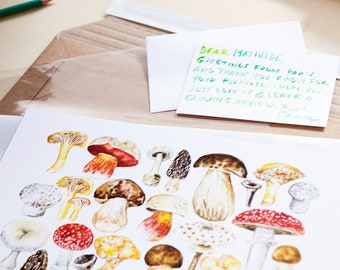 DEAR MATHILDE,
GREETINGS FROM PARIS,
AND THANK YOU KINDLY FOR
YOUR PURCHASE. I HOPE YOU
JUST LOVE IT & LEAVE A
GLOWING REVIEW.